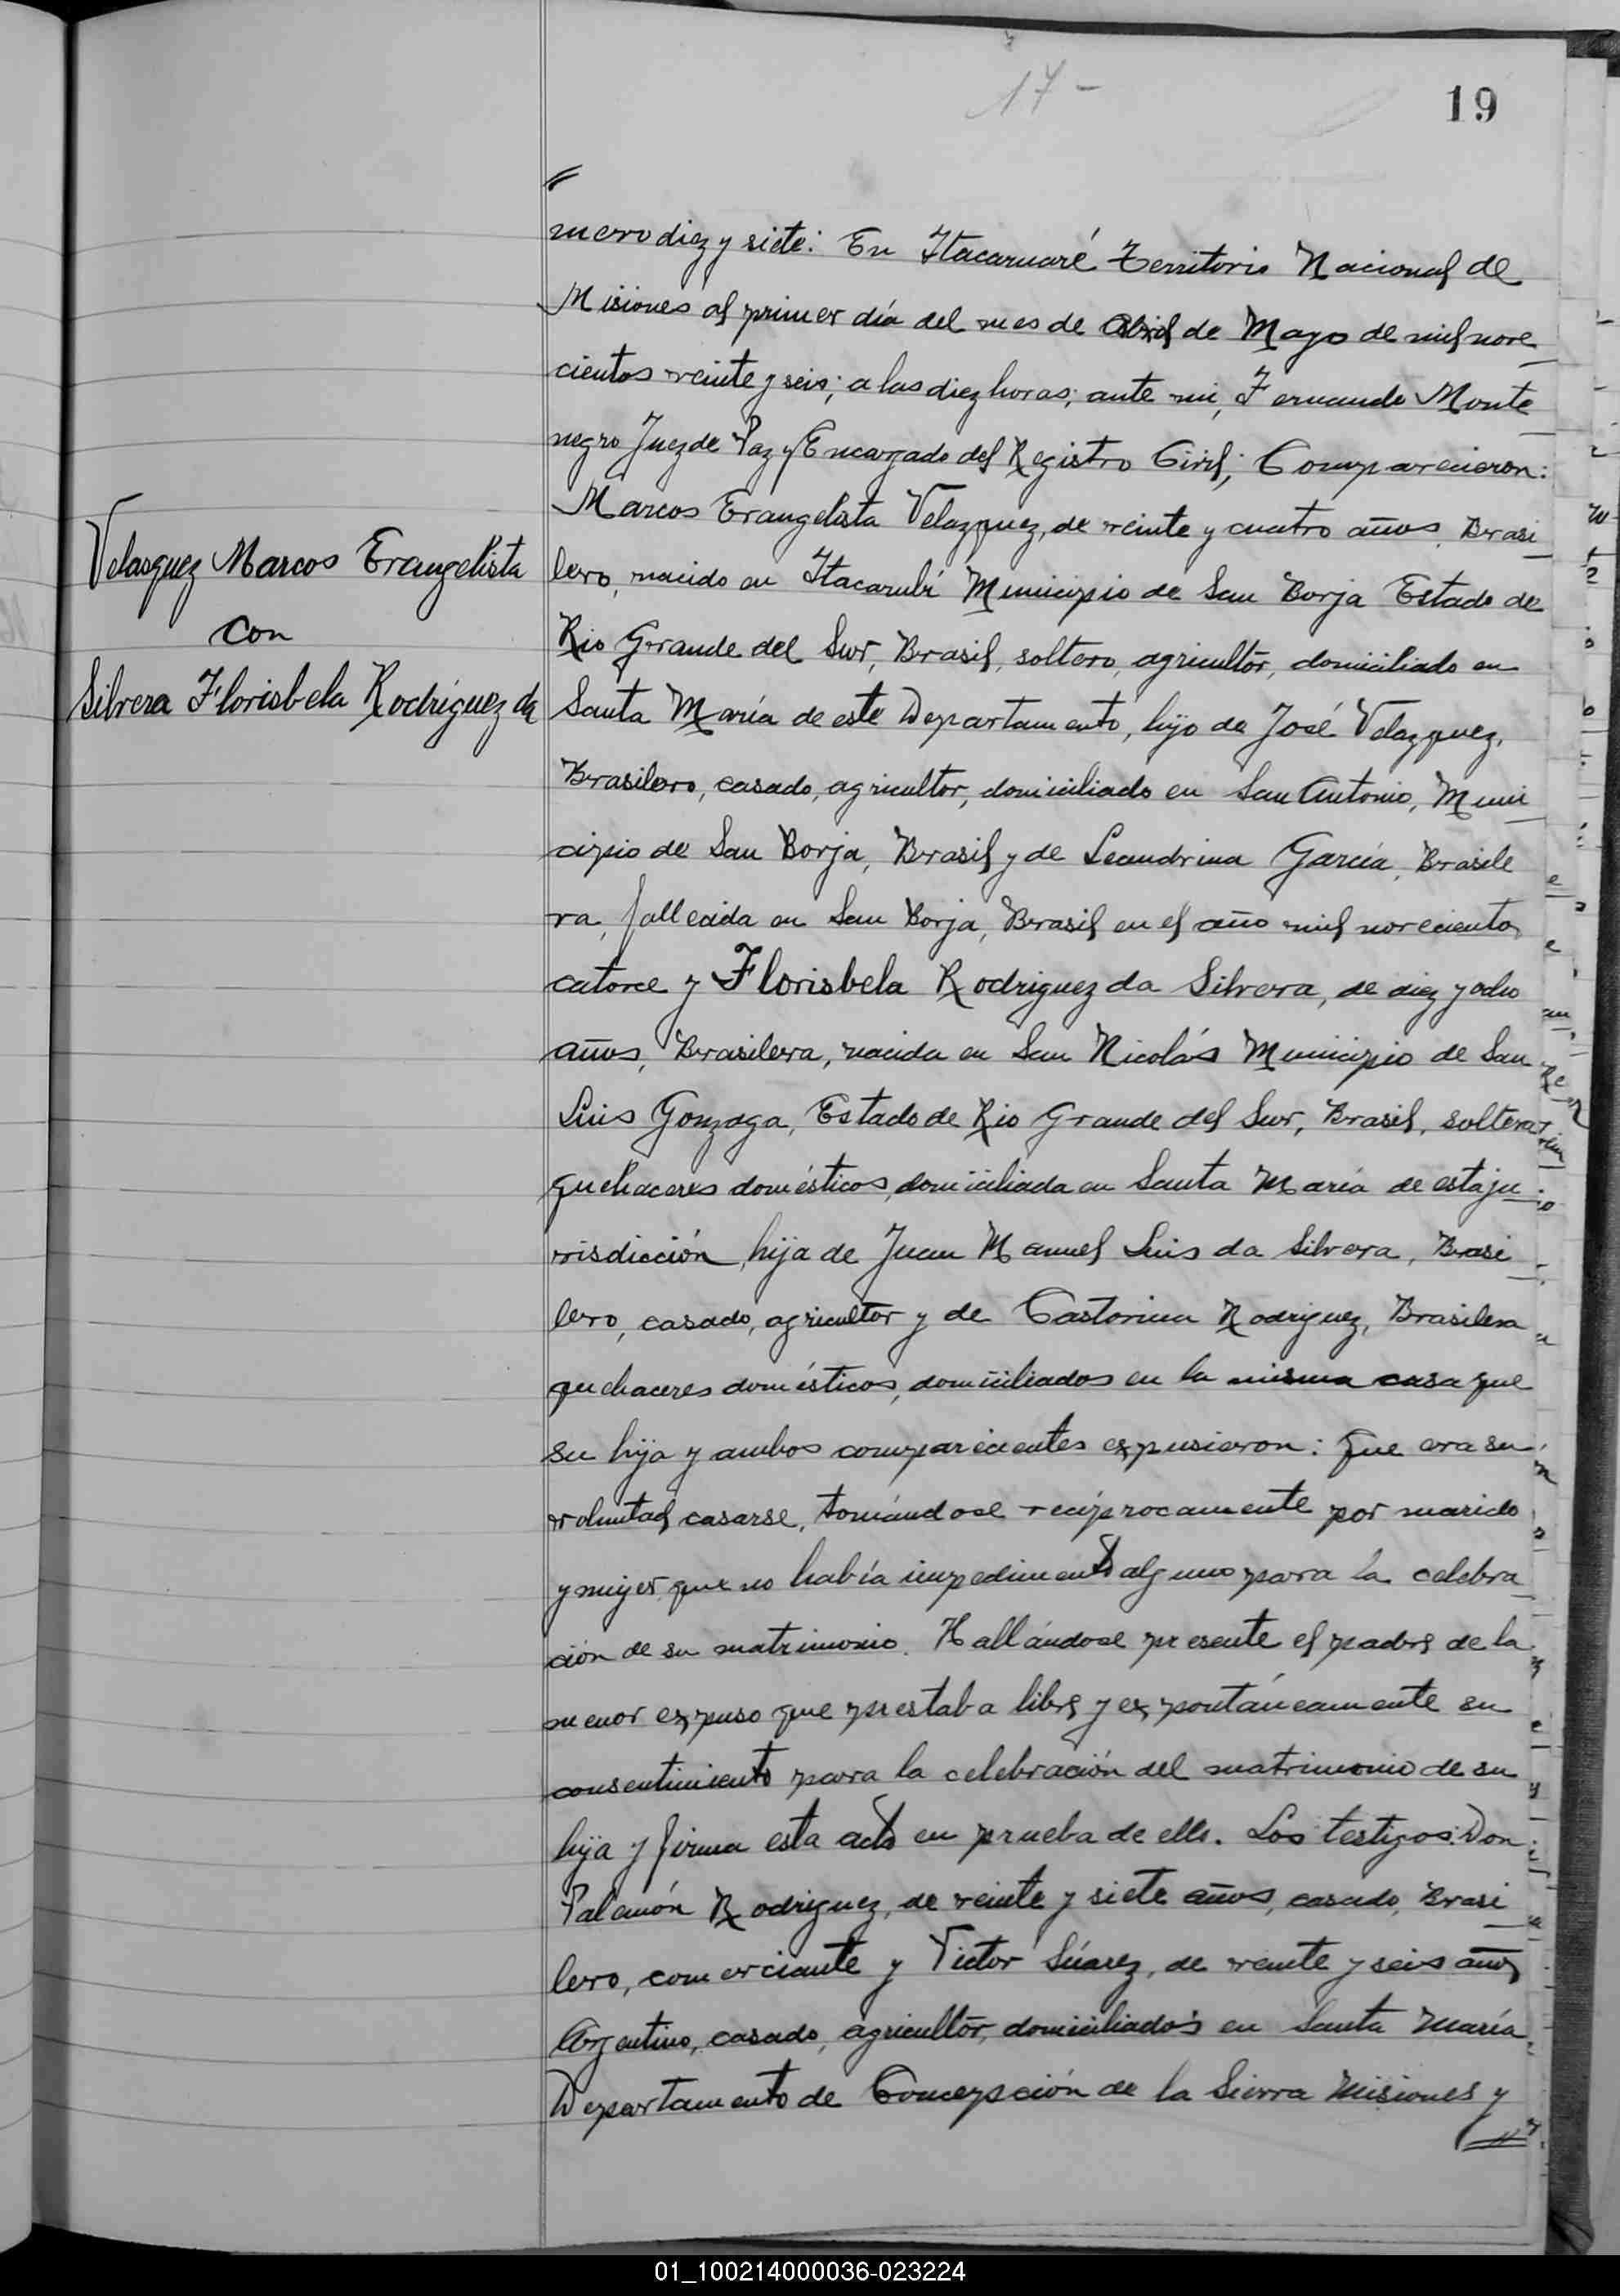 17-
19
"
mero diez y siete: En Itacaruaré Territorio Nacional de
Misiones al primer día del mes de Abril de Mayo de mil nove
cientos veinte y seis; a las diez horas; ante mi, Fernando Monte
negro Juez de Paz y Encargado del Registro Civil; Comparecieron:
Marcos Evangelista Velazquez, de veinte y cuatro años, Brasi
lero, nacido en Itacarubí Municipio de San Borja Estado de
Rio Grande del Sur, Brasil, soltero, agricultor, domiciliado en
Santa María de este Departamento, hijo de José Velazquez,
Brasilero, casado, agricultor, domiciliado en San Antonio, Muni
cipio de San Borja, Brasil y de Leandrina García, Brasile
ra, fallecida en San Borja, Brasil en el año mil novecientos
catorce y Florisbela Rodriguez da Silvera, de diez y ocho
años, Brasilera, nacida en San Nicolás Municipio de San
Luis Gonzaga, Estado de Rio Grande del Sur, Brasil, soltera
quehaceres domésticos, domiciliada en Santa María de esta ju
risdicción, hija de Juan Manuel Luis da Silvera, Brasi
lero, casado, agricultor y de Castorina Rodriguez, Brasilera
quehaceres domésticos, domiciliados en la misma casa que
su hija y ambos comparecientes expusieron: Que era su
voluntad casarse, tomándose recíprocamente por marido
y mujer que no había impedimento alguno para la celebra
ción de su matrimonio. Hallándose presente el padre de la
menor expuso que prestaba libre y expontáneamente su
consentimiento para la celebración del matrimonio de su
hija y firma esta acta en prueba de ello. Los testigos: Don
Palemón Rodriguez, de veinte y siete años, casado, Brasi
lero, comerciante y Victor Súarez, de veinte y seis años
Argentino, casado, agricultor, domiciliados en Santa María
Departamento de Concepción de la Sierra Misiones y
"
Velasquez Marcos Evangelista
con
Silvera Florisbela Rodríguez da
01_100214000036-023224